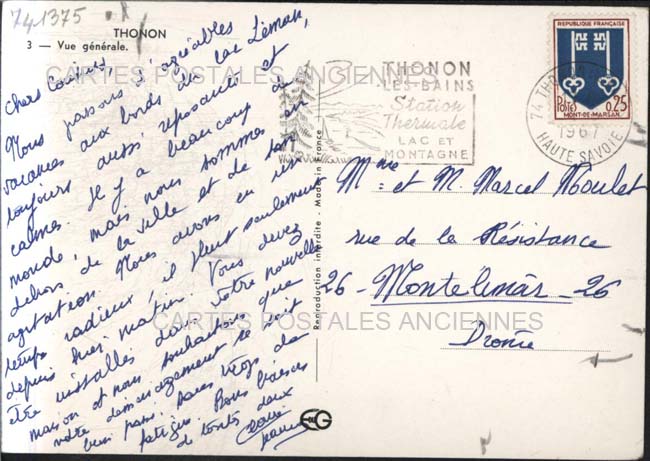 741375
THONON
3 — Vue générale.
Chers Cousins,
Nous passons d'agréables
vacances aux bords du lac Léman,
toujours aussi reposants et
calmes. Il y a beaucoup de
monde, mais nous sommes en
dehors de la ville et de son
agitation. Nous avons eu un
temps radieux, il pleut seulement
depuis hier matin. Vous devez
être installés dans votre nouvelle
maison et nous souhaitons que
votre déménagement se soit
bien passé, sans trop de
fatigue. Bons baisers
de tous deux
CARTES POSTALES ANCIENNES
CARTES POSTALES ANCIENNES
Reproduction interdite - Made in France
EG
THONON
-LES-BAINS
Station
Thermale
LAC ET
MONTAGNE
74 THONON
1967
HAUTE SAVOIE
REPUBLIQUE FRANÇAISE
Postes
0,25
MONT-DE-MARSAN
Mme et M. Marcel Moulet
rue de la Résistance
26 - Montelimar - 26
Drome